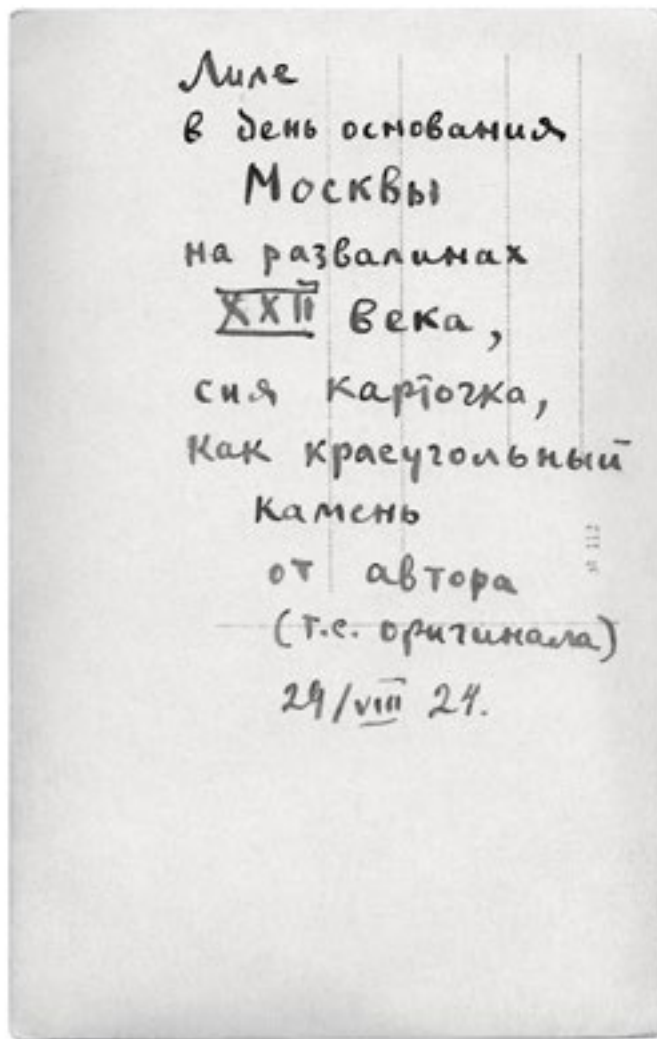 Лиле
в день основания
Москвы
на развалинах
XXII века,
сия карточка,
как краеугольный
камень
от автора
(т.е. оригинала)
29/VIII 24.